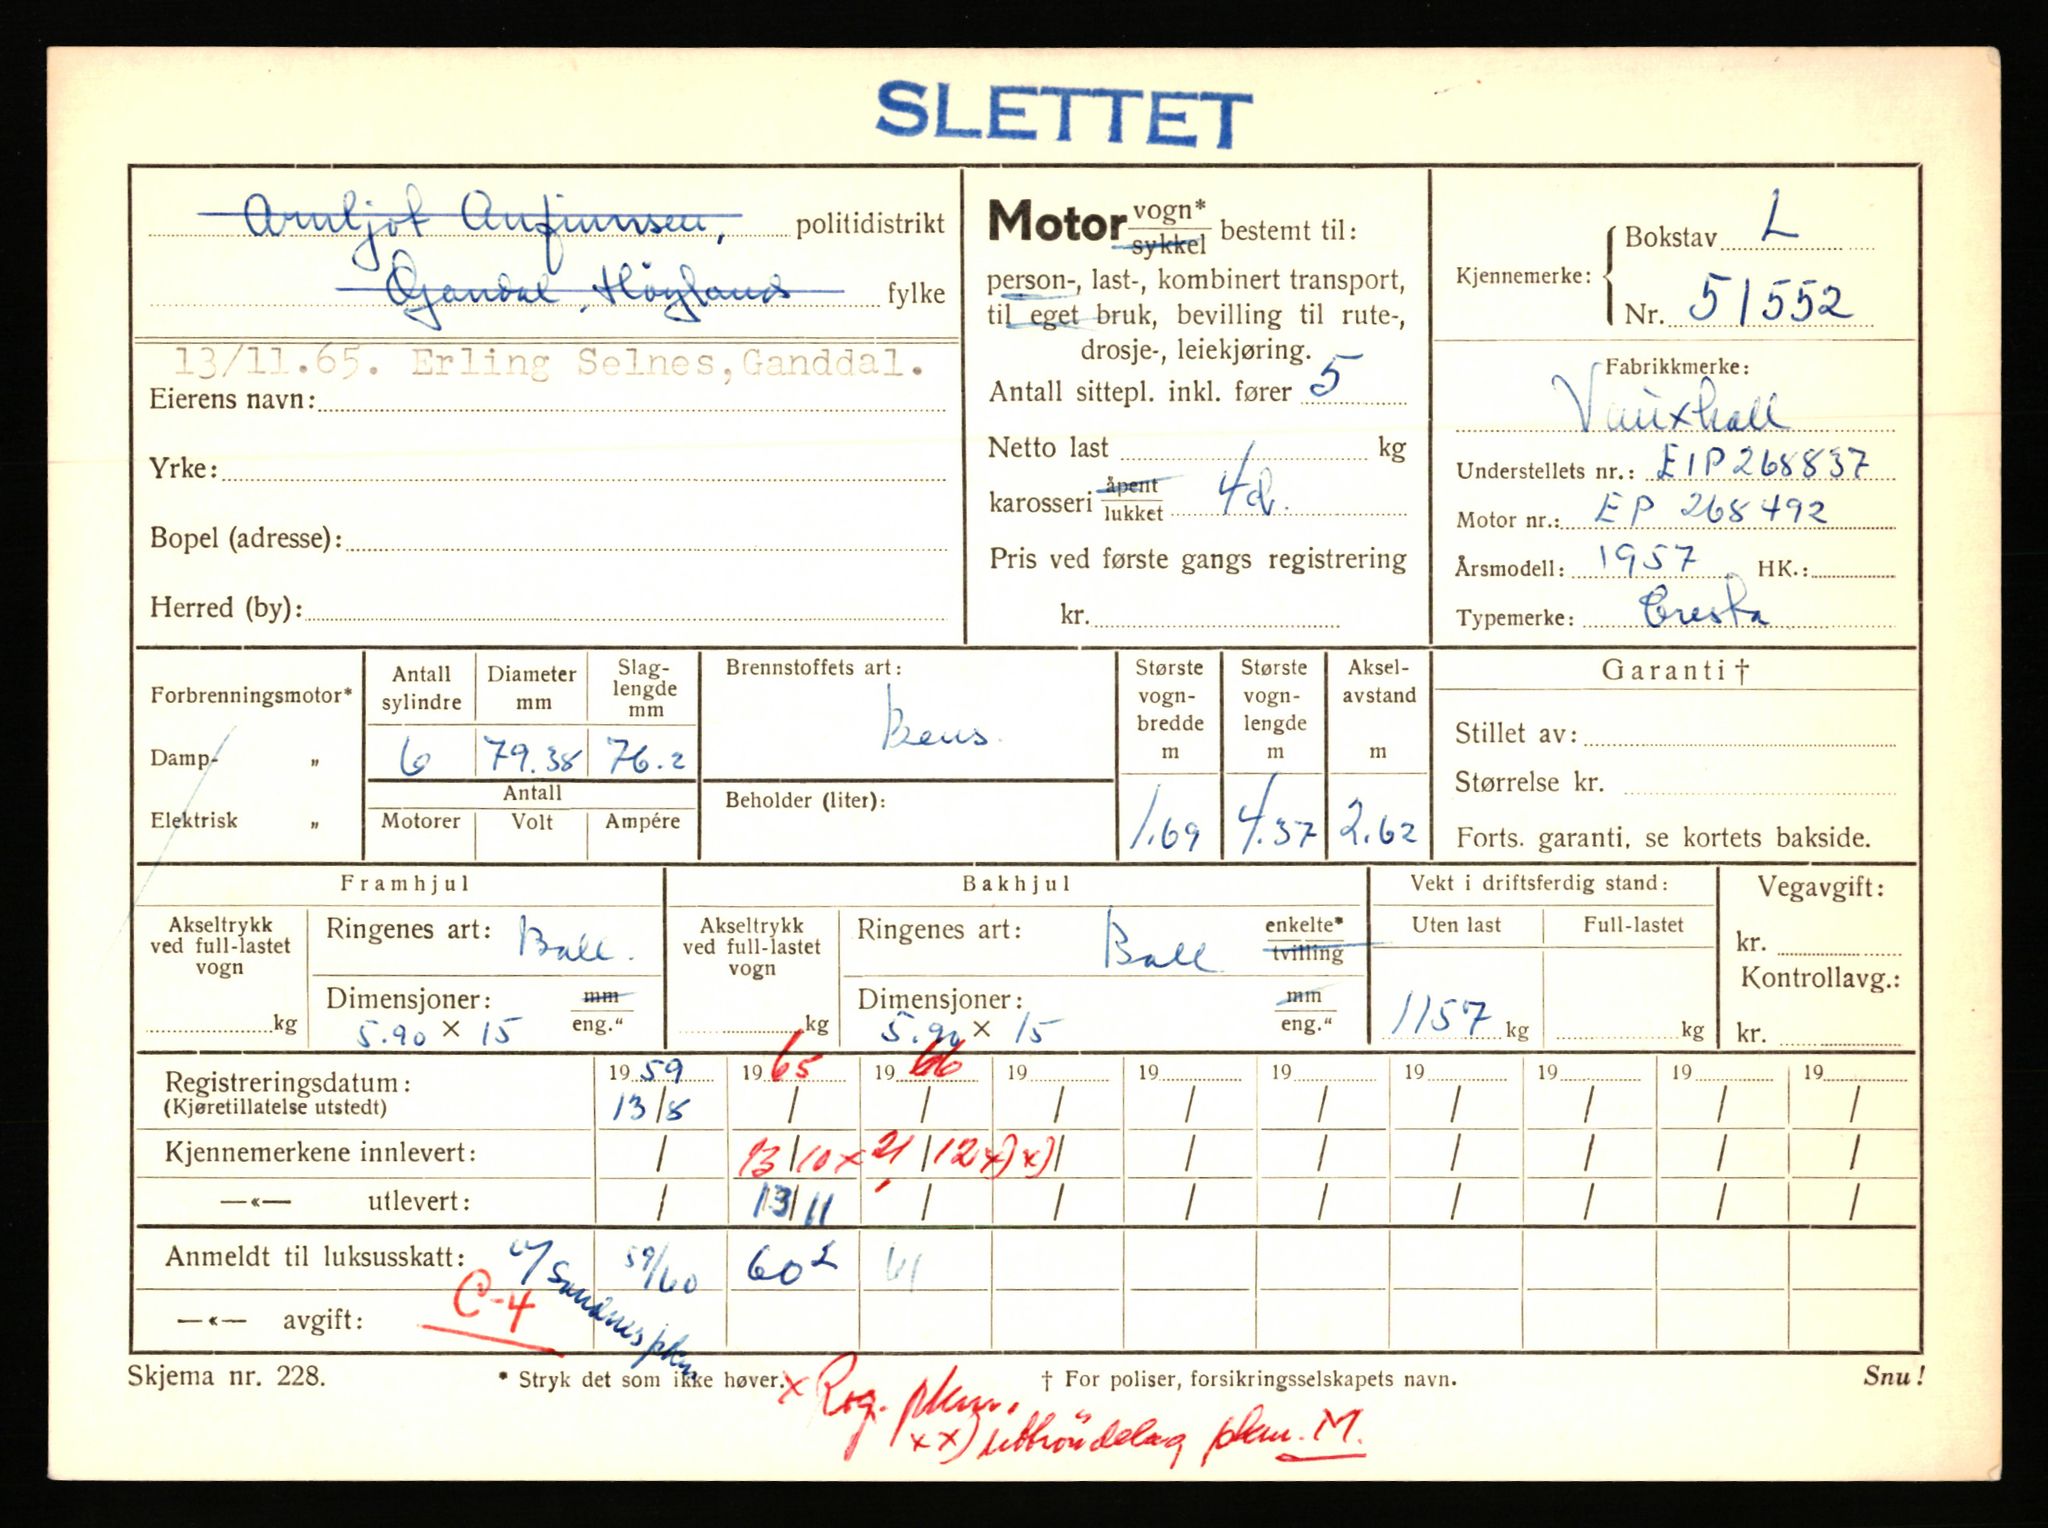 SLETTET
Arnljot Anfinnsen, politidistrikt
Gandal, Høyland fylke
13/11.65. Erling Selnes, Ganddal.
Eierens navn:
Yrke:
Bopel (adresse):
Herred (by):
Motor vogn* sykkel bestemt til:
person-, last-, kombinert transport,
til eget bruk, bevilling til rute-,
drosje-, leiekjøring.
Antall sittepl. inkl. fører 5
Netto last kg
karosseri åpent lukket 4d.
Pris ved første gangs registrering
kr.
Kjennemerke: Bokstav L
Nr. 51552
Fabrikkmerke:
Vauxhall
Understellets nr.: EIP268837
Motor nr.: EP 268492
Årsmodell: 1957 HK.:
Typemerke: Cresta
Forbrenningsmotor*
Damp- „
Elektrisk „
Antall sylindre
Diameter mm
Slag-lengde mm
6 79.38 76.2
Antall
Motorer Volt Ampére
Brennstoffets art:
Bens.
Beholder (liter):
Største vogn-bredde m
Største vogn-lengde m
Aksel-avstand m
1.69 4.37 2.62
Garanti †
Stillet av:
Størrelse kr.
Forts. garanti, se kortets bakside.
Framhjul
Akseltrykk ved full-lastet vogn
kg
Ringenes art: Ball.
Dimensjoner: mm eng."
5.90 × 15
Bakhjul
Akseltrykk ved full-lastet vogn
kg
Ringenes art: Ball enkelte* tvilling
Dimensjoner: mm eng."
5.90 × 15
Vekt i driftsferdig stand:
Uten last Full-lastet
1157 kg kg
Vegavgift:
kr.
Kontrollavg.:
kr.
Registreringsdatum: 1959 1965 1966 19 19 19 19 19 19 19
(Kjøretillatelse utstedt) 13/8 / / / / / / / / /
Kjennemerkene innlevert: / 13/10 x 21/12 x) x) / / / / / / /
—«— utlevert: / 13/11 / / / / / / / /
Anmeldt til luksusskatt: 59/60 60 L 61
Sandnes pkm
C-4
—«— avgift:
Skjema nr. 228. * Stryk det som ikke høver. † For poliser, forsikringsselskapets navn. Snu!
x Rog. pkm.
xx) Uttrøndelag pkm. M.